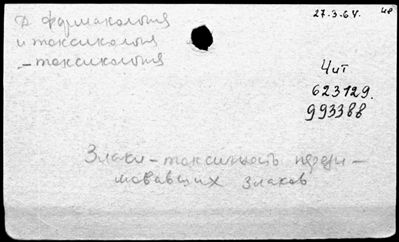 Ф фармакология
и токсикология
– токсикология
27.3.64.
Чит
623129.
993388
Злаки – токсичность перези-
мовавших злаков